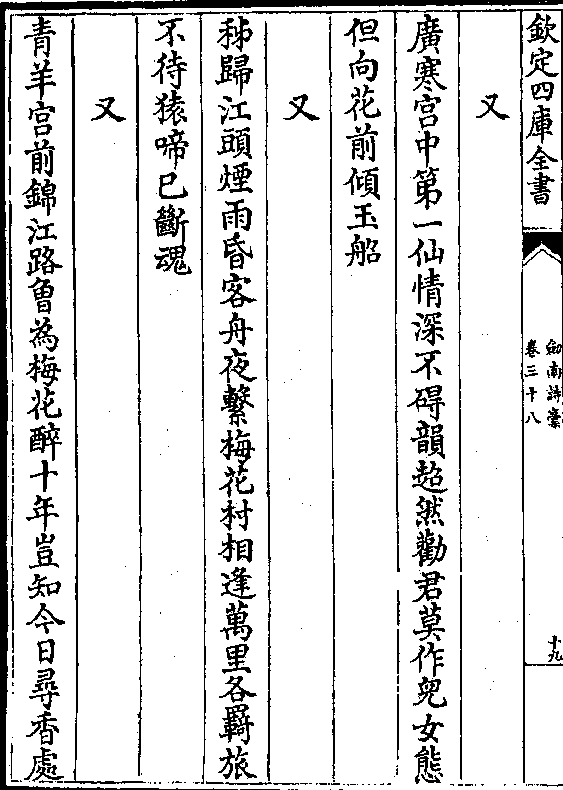 欽定四庫全書
劍南詩稾
卷三十八
十九
又
廣寒宫中第一仙情深不碍韻超然勸君莫作兒女態
但向花前傾玉船
又
秭歸江頭煙雨昏客舟夜繫梅花村相逢萬里各羇旅
不待猿啼已斷魂
又
青羊宫前錦江路曽為梅花醉十年豈知今日尋香處